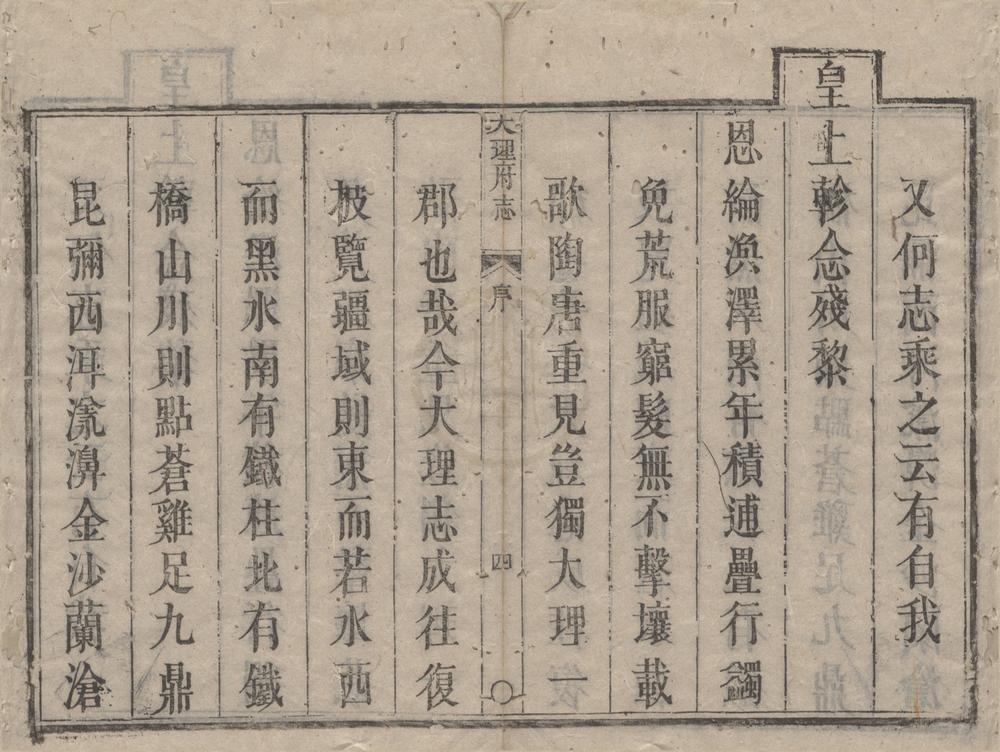 又何志乘之云有自我
皇上軫念殘黎
恩綸渙澤累年積逋疊行蠲
免荒服窮髮無不擊壤載
歌陶唐重見豈獨大理一
大理府志 序 四
郡也哉今大理志成往復
披覽疆域則東而若水西
而黑水南有鐵柱北有鐵
橋山川則點蒼雞足九鼎
昆彌西洱漾濞金沙蘭滄